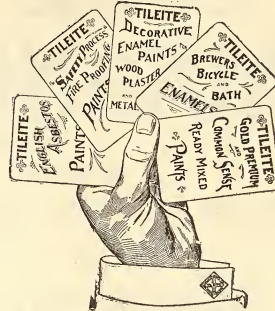 TILEITE
ENGLISH
ASBESTOS
PAINTS
TILEITE
SATEEN PROCESS
FIRE PROOFING
PAINTS
TILEITE
DECORATIVE
ENAMEL
PAINTS FOR
WOOD
PLASTER
AND
METAL
TILEITE
BREWERS
BICYCLE
AND
BATH
ENAMELS
TILEITE
GOLD PREMIUM
AND
COMMON SENSE
READY MIXED
PAINTS